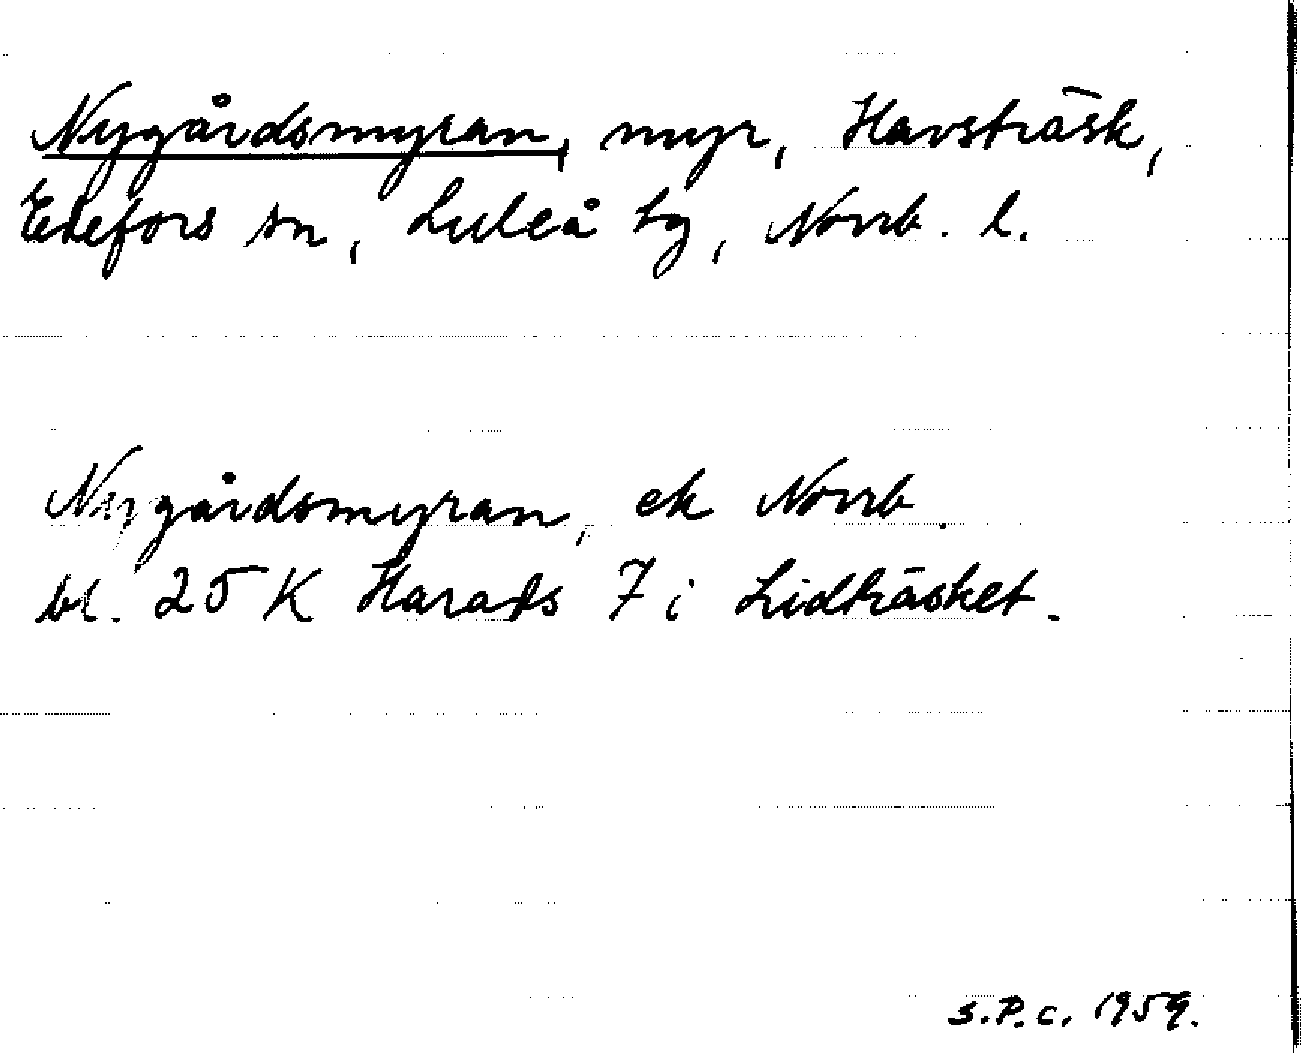 Nygårdsmyran, myr, Havsträsk,
Edefors sn, Luleå tg, Norrb. l.
Nygårdsmyran, ek Norrb.
bl. 25 K Harads 7 i Lidträsket.
S.P.C. 1959.